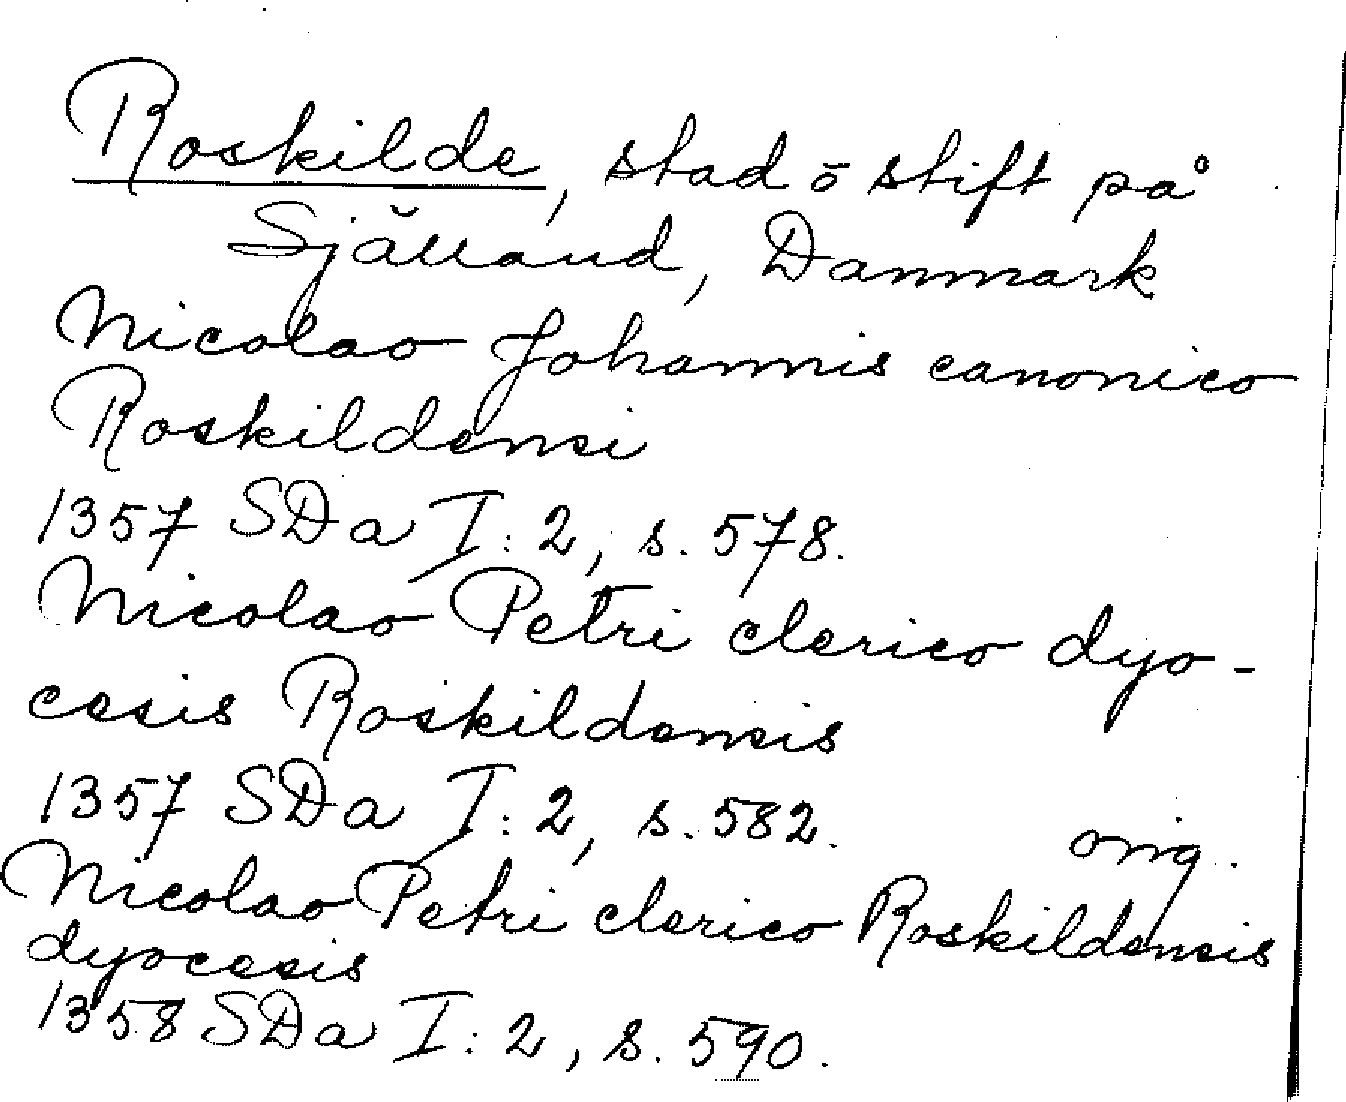 Roskilde, stad ō stift på
Själland, Danmark
Nicolao Johannis canonico
Roskildensi
1357 SDa I:2, s. 578.
Nicolao Petri clerico dyo-
cesis Roskildensis
1357 SDa I:2, s. 582. orig.
Nicolao Petri clerico Roskildensis
dyocesis
1358 SDa I:2, s. 590.